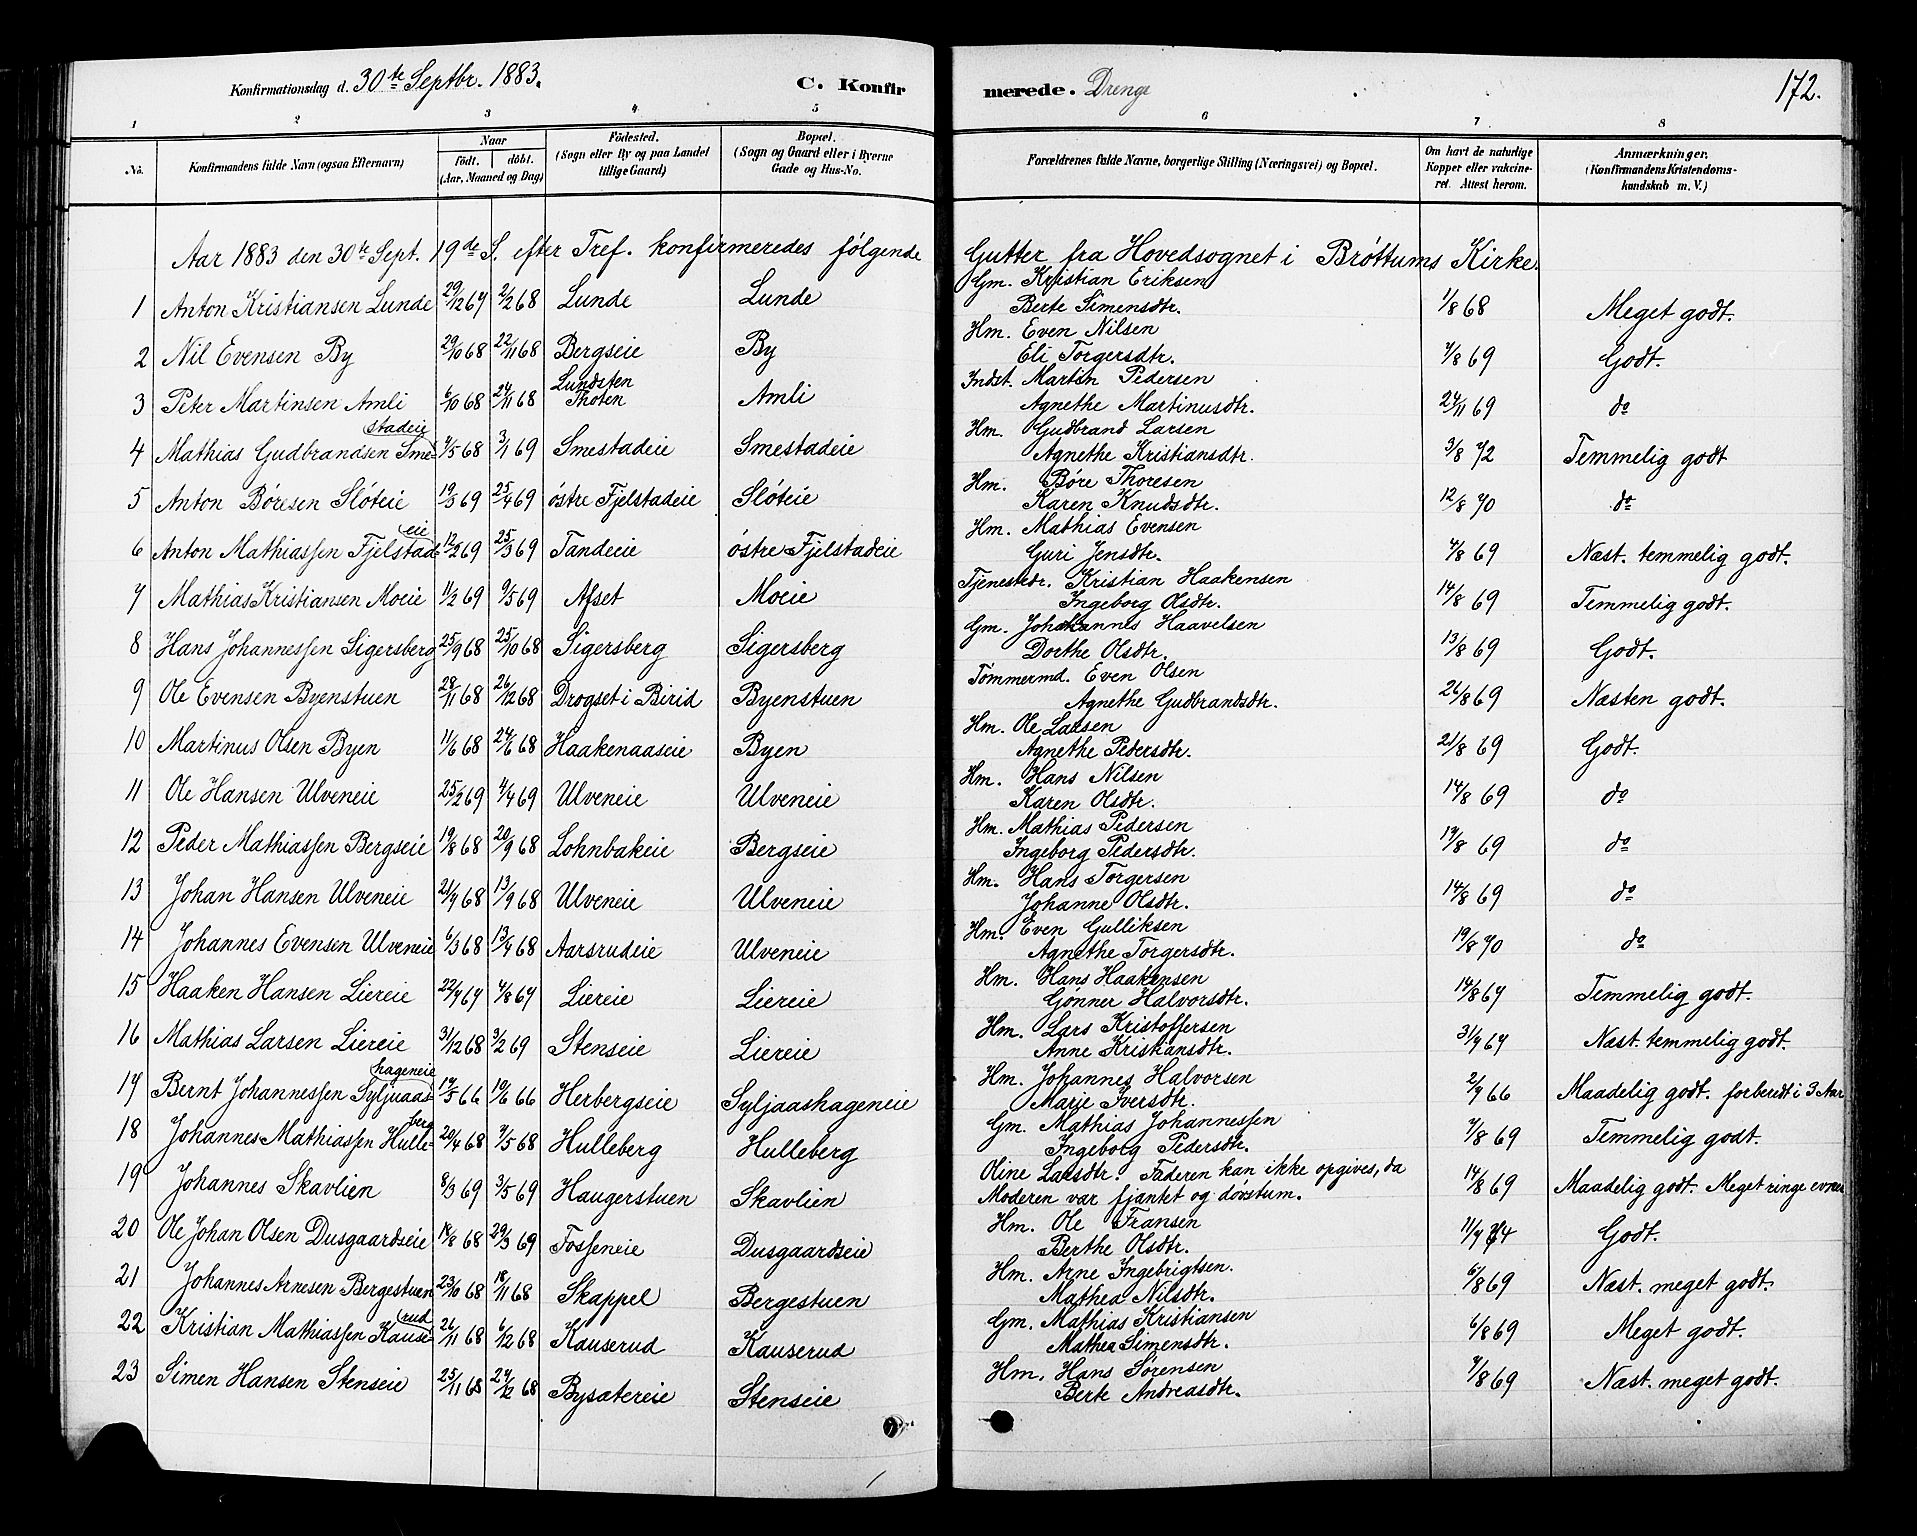 Konfirmationsdag d. 30te Septbr. 1883. C. Konfir merede. Drenge 172.
1 2 3 4 5 6 7 8
No. Konfirmandens fulde Navn (ogsaa Efternavn) Naar födt. döbt. (Aar, Maaned og Dag) Födested. (Sogn eller By og paa Landet tillige Gaard) Bopæl. (Sogn og Gaard eller i Byerne Gade og Hus-No. Forældrenes fulde Navne, borgerlige Stilling (Næringsvei) og Bopæl. Om havt de naturlige Kopper eller vakcineret. Attest herom. Anmærkninger. (Konfirmandens Kristendomskundskab m. V.)
Aar 1883 den 30te Sept. 19de S. efter Tref. konfirmeredes følgende Gutter fra Hovedsognet i Brøttums Kirke.
1 Anton Kristiansen Lunde 29/12 67 2/2 68 Lunde Lunde Gm. Kristian Eriksen Berte Simensdtr. 1/8 68 Meget godt.
2 Nil Evensen By 29/10 68 22/11 68 Bergseie By Hm. Even Nilsen Eli Torgersdtr. 7/8 69 Godt.
3 Peter Martinsen Amli 6/10 68 24/11 68 Lundsten Thoten Amli Indst. Martin Pedersen Agnethe Martinusdtr. 24/11 69 do
4 Mathias Gudbrandsen Smestadeie 7/5 68 3/1 69 Smestadeie Smestadeie Hm. Gudbrand Larsen Agnethe Kristiansdtr. 3/8 72 Temmelig godt
5 Anton Børesen Slóteie 19/3 69 25/4 69 østre Fjelstadeie Slóteie Hm. Børe Thoresen Karen Knudsdtr. 12/8 70 do
6 Anton Mathiassen Fjelstadeie 12/2 69 25/3 69 Tandeie østre Fjelstadeie Hm. Mathias Evensen Guri Jensdtr. 4/8 69 Næst. temmelig godt.
7 Mathias Kristiansen Moeie 11/2 69 9/5 69 Afset Moeie Tjenestedr. Kristian Haakensen Ingeborg Olsdtr. 14/8 69 Temmelig godt.
8 Hans Johannessen Sigersberg 25/9 68 25/10 68 Sigersberg Sigersberg Gm. Johannes Haavelsen Dorthe Olsdtr. 13/8 69 Godt.
9 Ole Evensen Byenstuen 28/11 68 26/12 68 Drogset i Birid Byenstuen Tømmermd. Even Olsen Agnethe Gudbrandsdtr. 26/8 69 Næsten godt.
10 Martinus Olsen Byen 11/6 68 24/6 68 Haakenaaseie Byen Hm. Ole Larsen Agnethe Pedersdtr. 21/8 69 Godt.
11 Ole Hansen Ulveneie 25/2 69 4/4 69 Ulveneie Ulveneie Hm. Hans Nilsen Karen Olsdtr. 14/8 69 do
12 Peder Mathiassen Bergseie 19/8 68 20/9 68 Lohnbakeie Bergseie Hm. Mathias Pedersen Ingeborg Pedersdtr. 17/8 69 do
13 Johan Hansen Ulveneie 21/7 68 13/9 68 Ulveneie Ulveneie Hm. Hans Torgersen Johanne Olsdtr. 14/8 69 do
14 Johannes Evensen Ulveneie 6/3 68 13/4 68 Aarsrudeie Ulveneie Hm. Even Gulliksen Agnethe Torgersdtr. 19/8 70 do
15 Haaken Hansen Liereie 22/7 67 4/8 67 Liereie Liereie Hm. Hans Haakensen Gønner Halvorsdtr. 14/8 67 Temmelig godt.
16 Mathias Larsen Liereie 31/12 68 3/2 69 Stenseie Liereie Hm. Lars Kristoffersen Anne Kristiansdtr. 31/7 67 Næst. temmelig godt.
17 Bernt Johannessen Syljuaashageneie 17/5 66 10/6 66 Herbergseie Syljaashageneie Hm. Johannes Halvorsen Marie Iversdtr. 2/7 66 Maadelig godt. forberedt i 3 Aar
18 Johannes Mathiassen Hulleberg 20/4 68 7/5 68 Hulleberg Hulleberg Gm. Mathias Johannessen Ingeborg Pedersdtr. 7/8 69 Temmelig godt.
19 Johannes Skavlien 8/3 69 3/5 69 Haugerstuen Skavlien Oline Larsdtr. Faderen kan ikke opgives, da Moderen var fjantet og døvstum. 14/8 69 Maadelig godt. Meget ringe evner
20 Ole Johan Olsen Dusgaardseie 18/8 68 29/3 69 Fosseneie Dusgaardseie Hm. Ole Fransen Berthe Olsdtr. 11/7 74 Godt.
21 Johannes Arnesen Bergestuen 23/10 68 18/11 68 Skappel Bergestuen Hm. Arne Ingebrigtsen. Mathea Nilsdtr. 6/8 69 Næst. meget godt.
22 Kristian Mathiassen Kauserud 26/11 68 6/12 68 Kauserud Kauserud Gm. Mathias Kristiansen Mathea Simensdtr. 6/8 69 Meget godt.
23 Simen Hansen Stenseie 25/11 68 27/12 68 Bysætereie Stenseie Hm. Hans Sørensen Berte Andreasdtr. 7/8 69 Næst. meget godt.